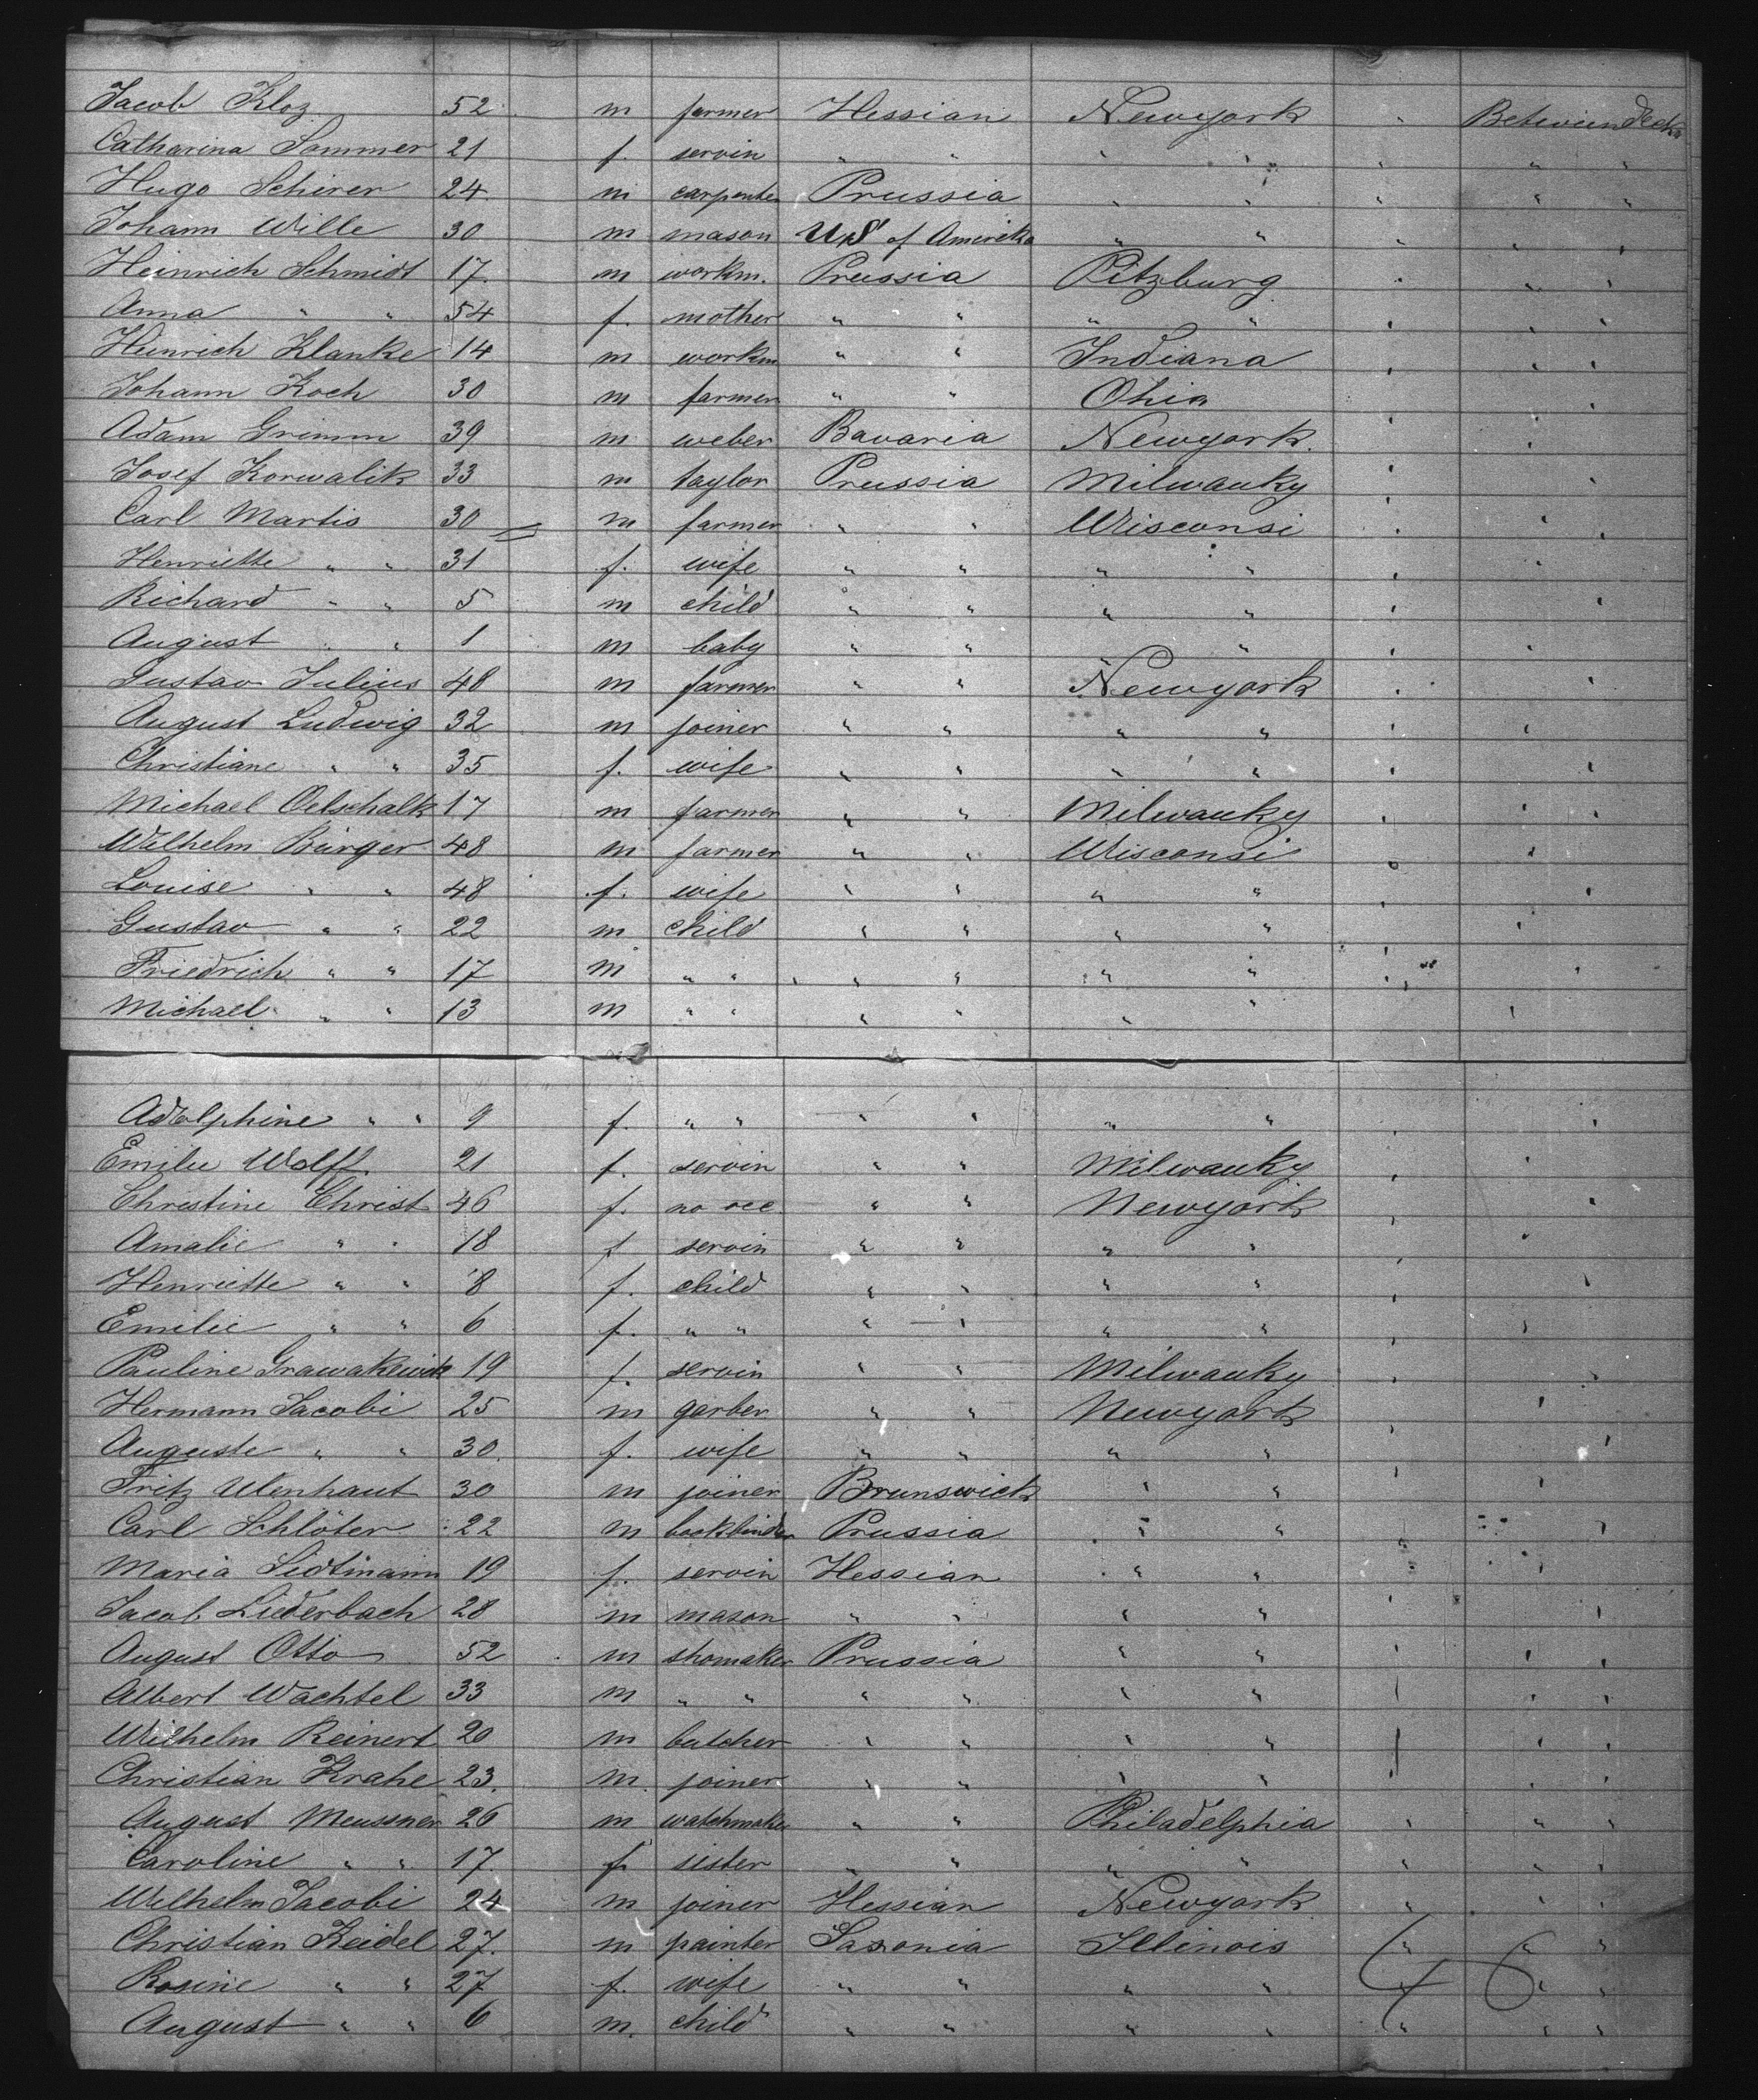 Jacob Kloz 52 m farmer Hessian Newyork " Betweendecks
Catharina Sommer 21 f. servin " " " " " " "
Hugo Schirer 24 m carpenter Prussia " " " " "
Johann Wille 30 m mason U.S of Amerika " " " " "
Heinrich Schmidt 17. m workm. Prussia Pitzburg " " "
Anna " " 54 f. mother " " " " " " "
Heinrich Klanke 14 m workm " " Indiana " " "
Johann Koch 30 m farmer " " Ohio " "
Adam Grimm 39 m weber Bavaria Newyork. " "
Josef Korwalik 33 m taylor Prussia Milwauky " "
Carl Martis 30 m farmer " " Wisconsi " " "
Henriette " " 31 f. wife " " " " " "
Richard " " 5 m child " " " " " "
August " " 1 m baby " " " " " "
Gustav Julius 48 m farmer " " Newyork " "
August Ludwig 32 m joiner " " " " " "
Christiane " " 35 f. wife " " " " " "
Michael Oelschalk 17 m farmer " " Milwauky " " "
Wilhelm Bürger 48 m farmer " " Wisconsi " "
Louise " " 48 f. wife " " " " " "
Gustav " " 22 m child " " " " " "
Friedrich " " 17 m " " " " " " " "
Michael " " 13 m " " " " " " "
Adolphine " " 9 f. " " " " " " " "
Emilie Wolff. 21 f. servin " " Milwauky " "
Christine Christ 46 f. no occ. " " Newyork " "
Amalie " " 18 f servin " " " " " "
Henriette " " 8 f. child " " " " " "
Emilie " " 6 f. " " " " " " " "
Pauline 19 f. servin " " Milwauky " "
Hermann Jacobi 25 m gerber " " Newyork " "
Auguste " " 30. f. wife " " " " " "
Fritz Ulenhaut 30 m joiner Brunswick " " " "
Carl Schlöter 22 m bookbinder Prussia " " " "
Maria Sidtmann 19 f. servin Hessian " " " "
Jacob Liederbach 28 m mason " " " " " "
August Otto 52 m shomaker Prussia " " " " "
Albert Wachtel 33 m " " " " " " " " "
Wilhelm Reinert 20 m butcher " " " " " " "
Christian Krahe 23. m. joiner " " " " " " "
August Meussner 26 m watchmaker " " Philadelphia " " "
Caroline " " 17. f sister " " " " " " "
Wilhelm Jacobi 24 m joiner Hessian Newyork " " "
Christian Keidel 27. m painter Saxonia Illinois " " "
Rosine " " 27 f. wife " " " " " " "
August " " 6 m. child " " " " " " "